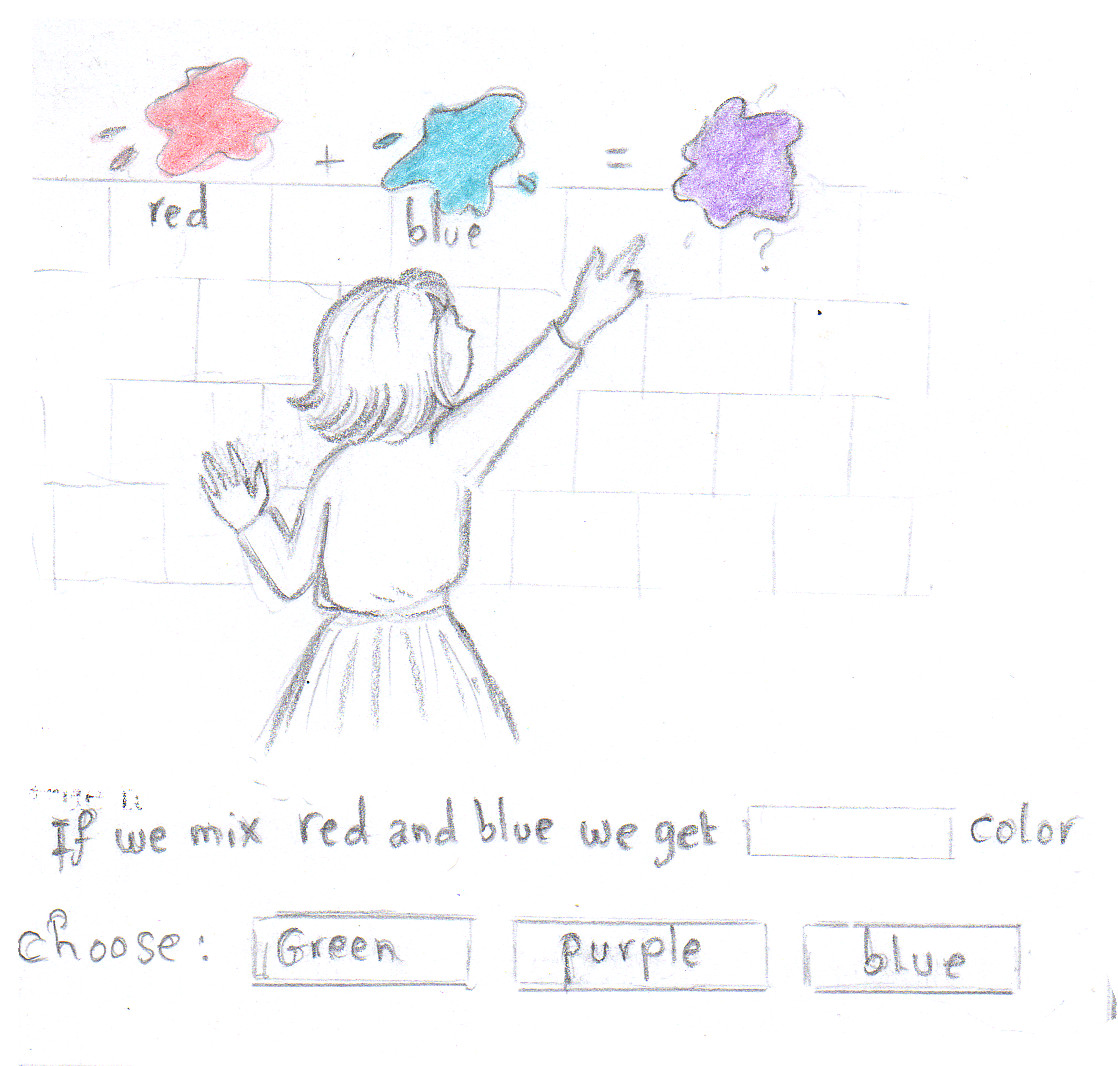 + =
red
blue
?
If we mix red and blue we get color
choose: Green purple blue